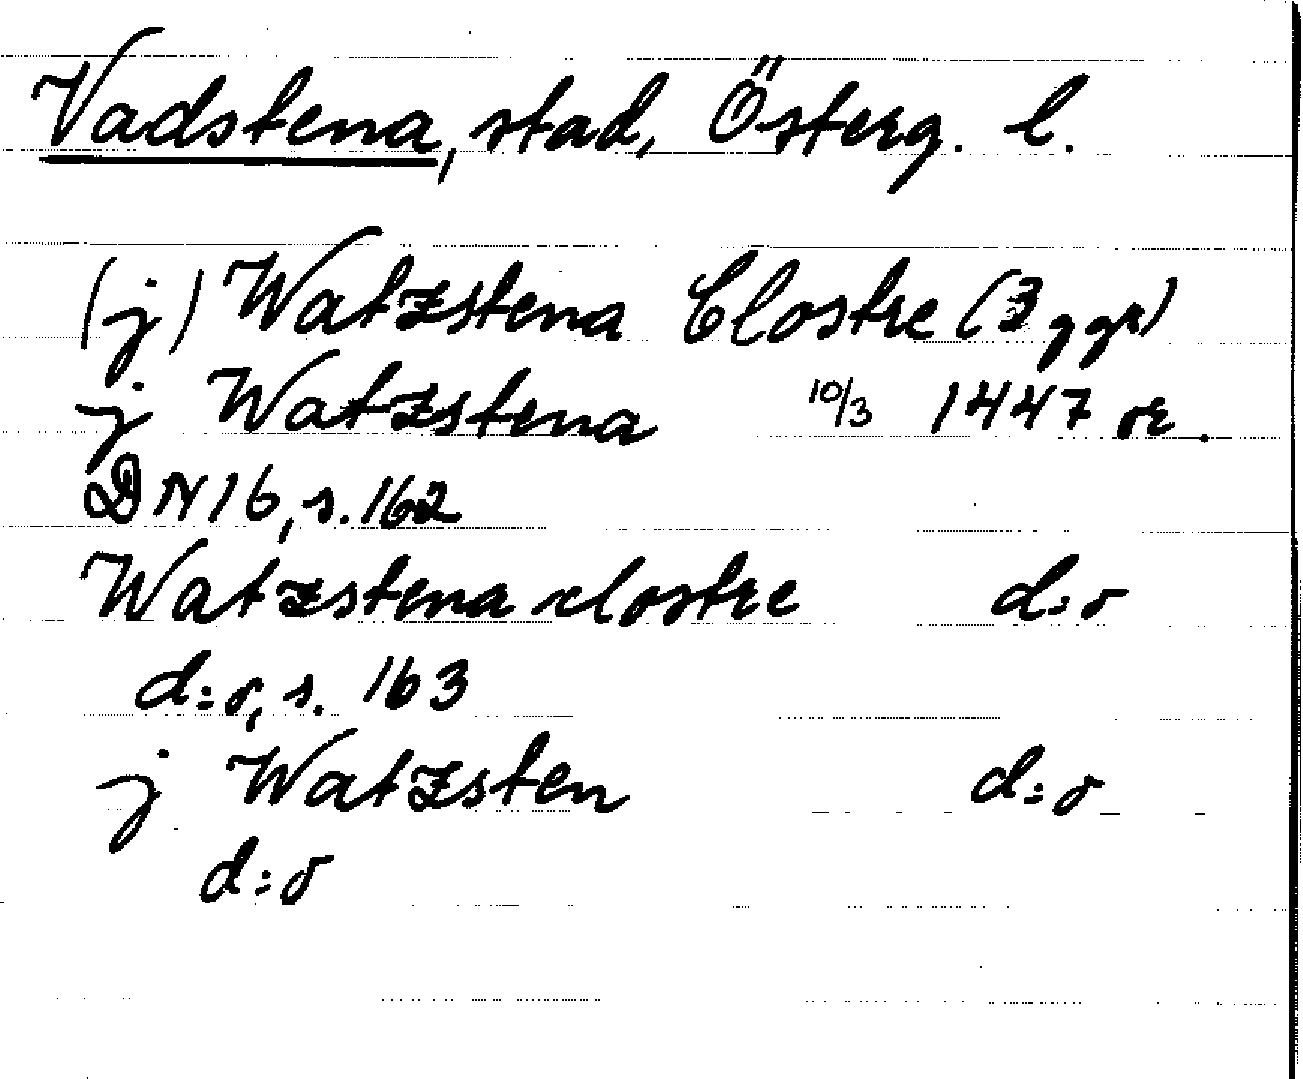 Vadstena, stad, Österg. l.
(j) Watzstena Clostre (3 ggr)
j Watzstena 10/3 1447 or.
DN 16, s. 162
Watzstena clostre d:o
d:o, s. 163
j Watzsten d:o
d:o